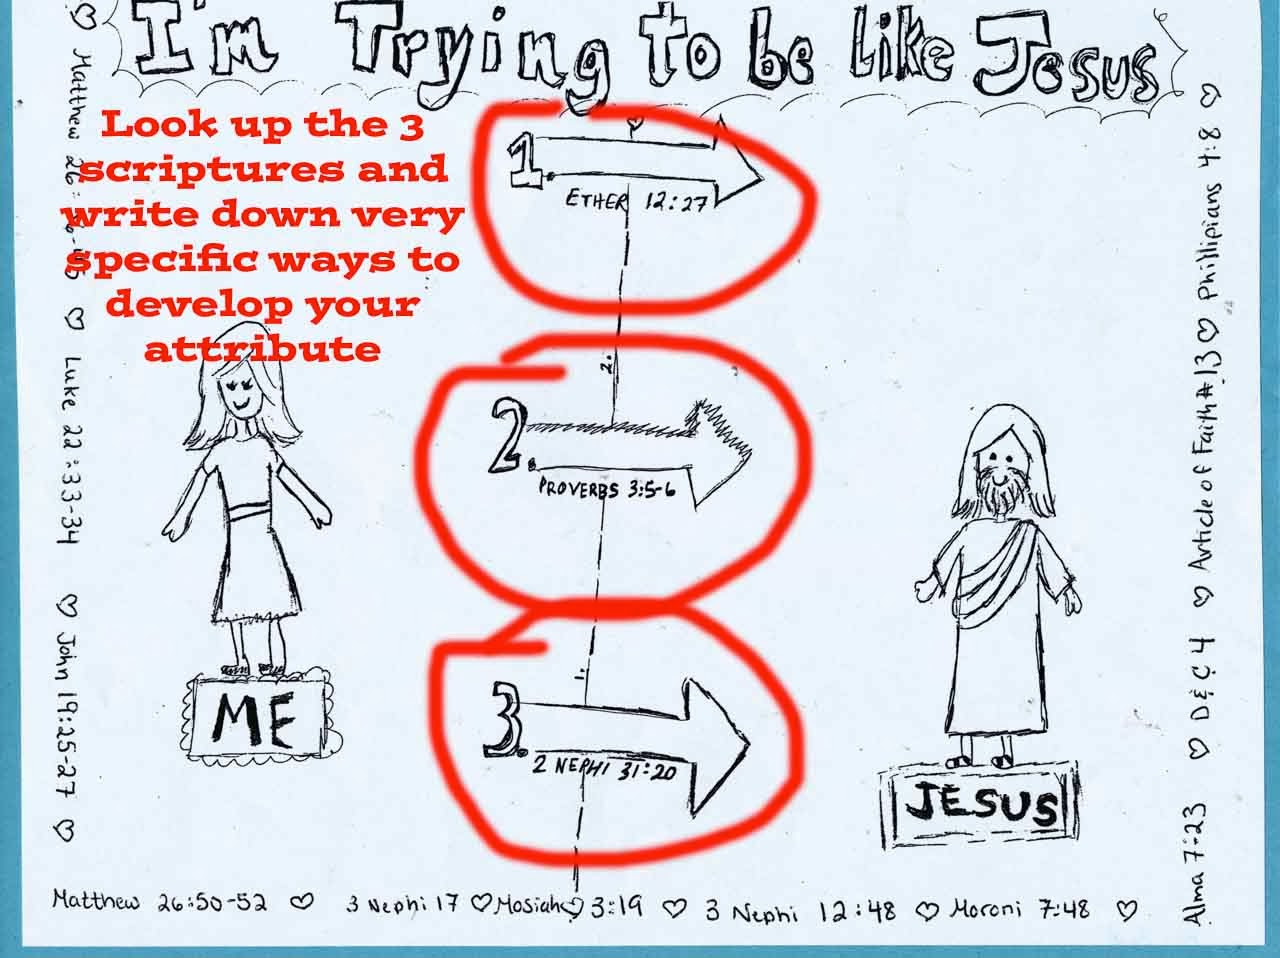 I'm Trying to be Like Jesus
Look up the 3
scriptures and
write down very
specific ways to
develop your
attribute
1.
ETHER 12:27
2.
2.
PROVERBS 3:5-6
1.
3.
2 NEPHI 31:20
ME
JESUS
Matthew 26:
Luke 22:33-34
John 19:25-27
Matthew 26:50-52 ♡ 3 Nephi 17 ♡ Mosiah 3:19 ♡ 3 Nephi 12:48 ♡ Moroni 7:48 ♡
Alma 7:23 ♡ D&C 4 ♡ Article of Faith #13 ♡ Phillipians 4:8 ♡